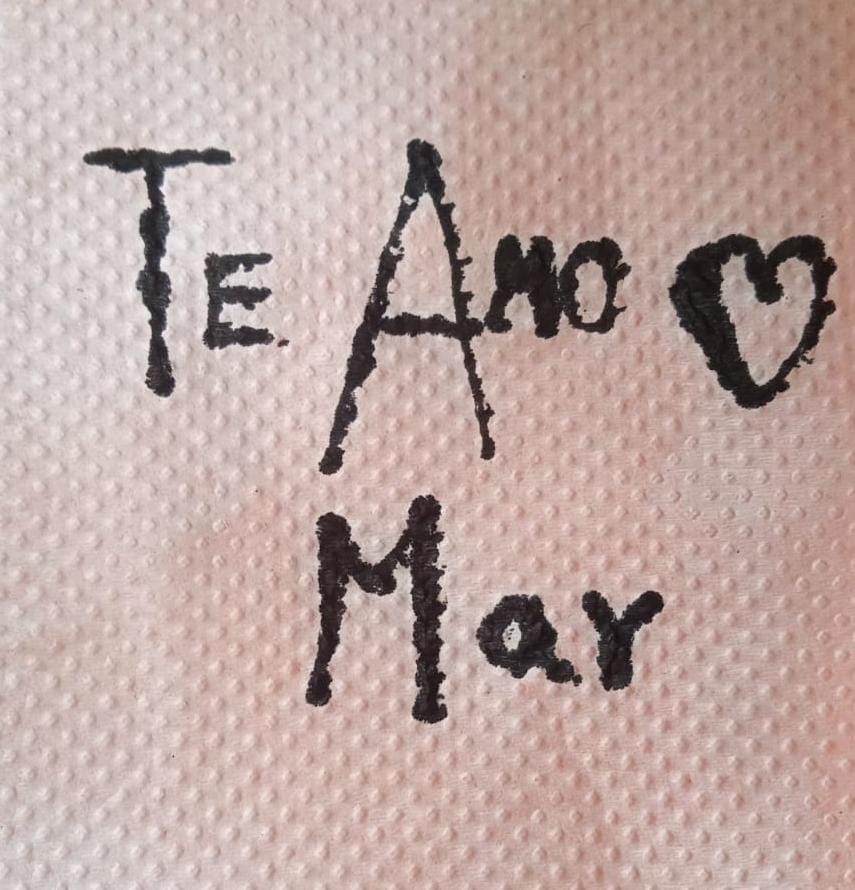 Te Amo ♡
Mar